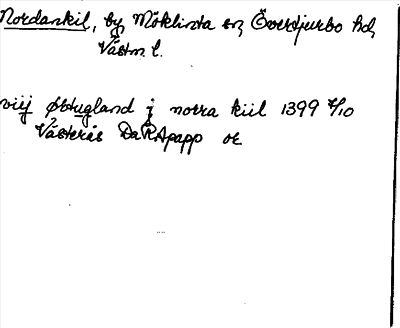 Nordankil, by, Möklinta sn, Övertjurbo hd,
Västm. l.
viij øbtugland j norra kiil 1399 4/10
Västerås DaRApapp or